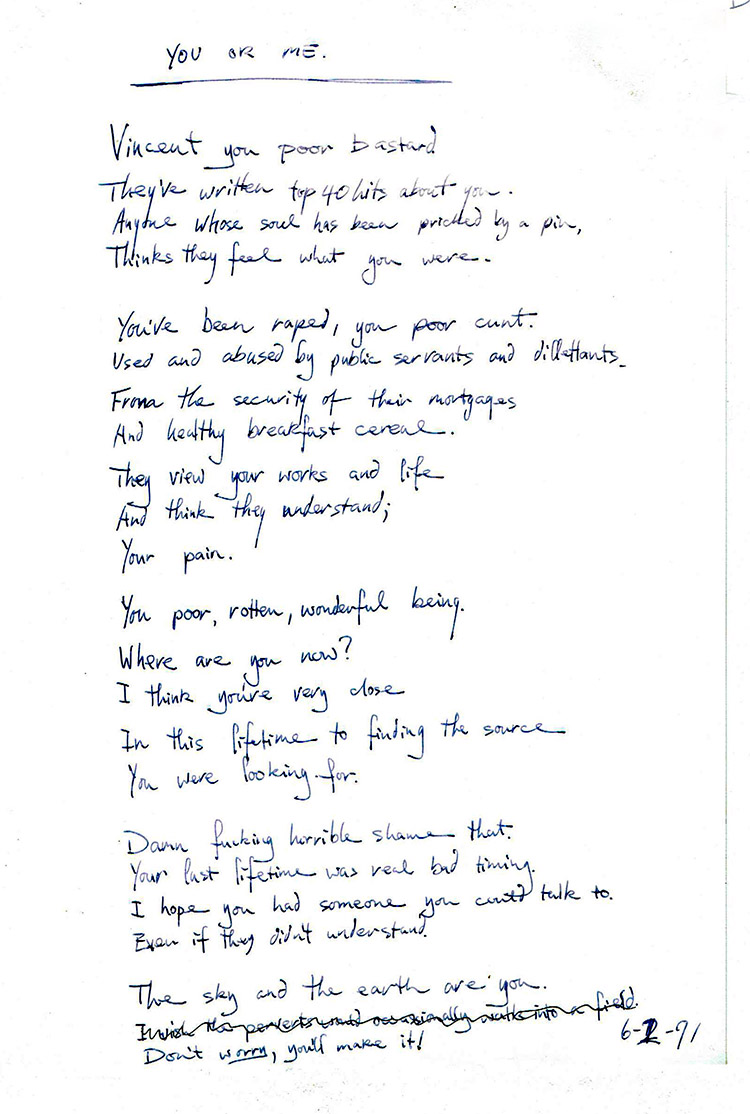 YOU OR ME.
Vincent you poor bastard
They've written top 40 hits about you.
Anyone whose soul has been pricked by a pin,
Thinks they feel what you were.
You've been raped, you poor cunt.
Used and abused by public servants and dillettants.
From the security of their mortgages
And healthy breakfast cereal.
They view your works and life
And think they understand;
Your pain.
You poor, rotten, wonderful being.
Where are you now?
I think you're very close
In this lifetime to finding the source
You were looking for.
Damn fucking horrible shame that.
Your last lifetime was real bad timing.
I hope you had someone you could talk to.
Even if they didn't understand.
The sky and the earth are you.
I wish the perverts would occasionally walk into a field.
Don't worry, you'll make it!
6-2-91